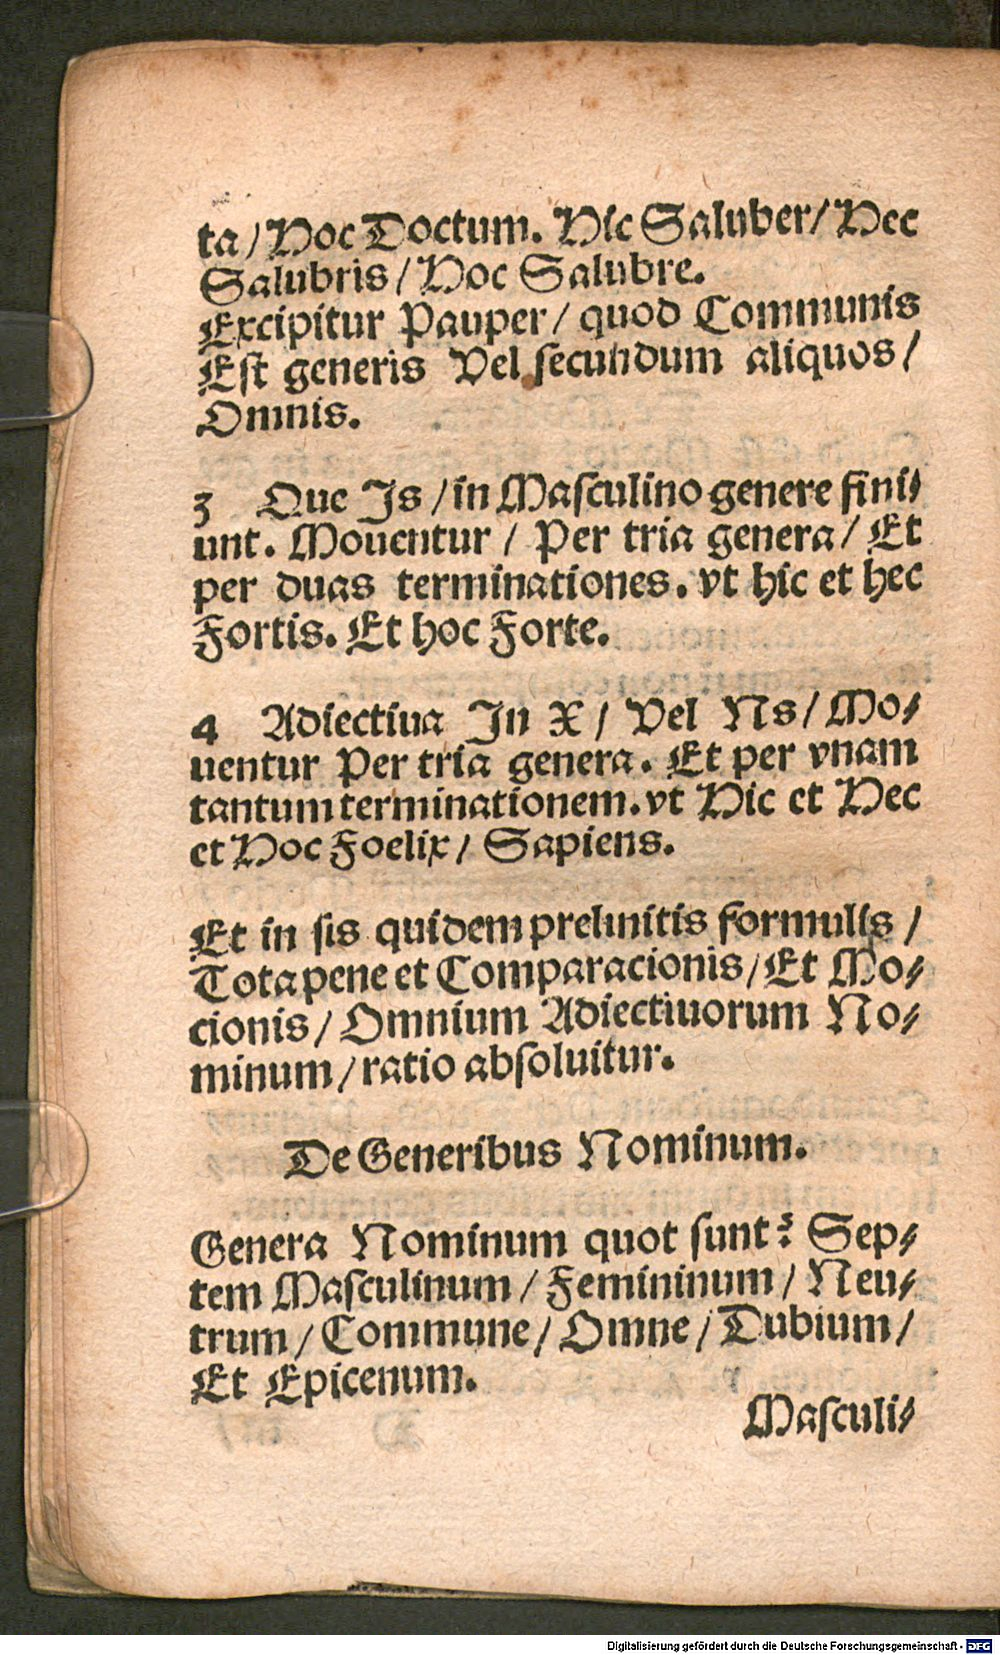 ta / Hoc Doctum. Hic Saluber / Hec
Salubris / Hoc Salubre.
Excipitur Pauper / quod Communis
Est generis Vel secundum aliquos /
Omnis.
3 Que Is / in Masculino genere fini⸗
unt. Mouentur / Per tria genera / Et
per duas terminationes. vt hic et hec
Fortis. Et hoc Forte.
4 Adiectiua In X / Vel Ns / Mo⸗
uentur Per tria genera. Et per vnam
tantum terminationem. vt Hic et Hec
et Hoc Foelix / Sapiens.
Et in sis quidem prelinitis formulis /
Tota pene et Comparacionis / Et Mo⸗
cionis / Omnium Adiectiuorum No⸗
minum / ratio absoluitur.
De Generibus Nominum.
Genera Nominum quot sunt? Sep⸗
tem Masculinum / Femininum / Neu⸗
trum / Commune / Omne / Dubium /
Et Epicenum.
Masculi⸗
Digitalisierung gefördert durch die Deutsche Forschungsgemeinschaft - DFG